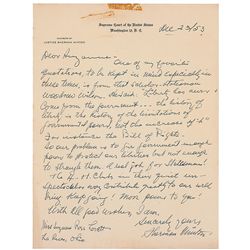 Supreme Court of the United States
Washington, D. C.
CHAMBERS OF
JUSTICE SHERMAN MINTON
Dec 23/53
Dear Suzanne:
One of my favorite
quotations, to be kept in mind especially in
these times, is from that scholar-statesman
Woodrow Wilson. He said: "Liberty has never
come from the government... the history of
liberty is the history of the limitations of
governmental power, not the increase of it"
For instance the Bill of Rights.
So our problem is to give government enough
power to protect our liberties but not enough
to strangle them. A real job for a Statesman!
The 4 H Clubs in their
may contribute greatly to our well
being. Keep going! More power to you!
With all good wishes, I am,
Sincerely yours
Sherman Minton
Miss Suzanne
Ohio